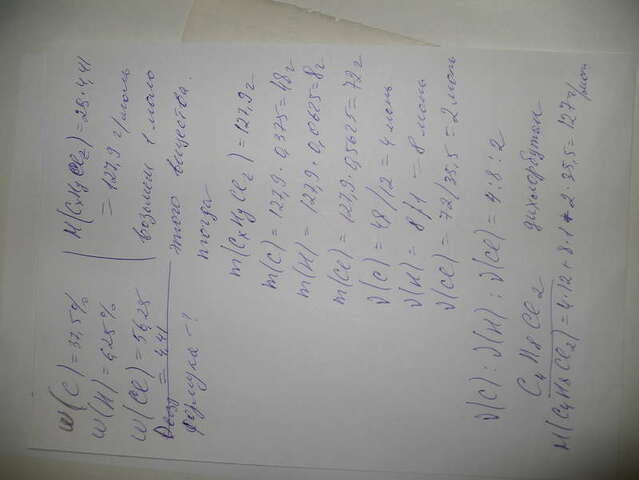 W(C) = 37,5%
W(H) = 6,25%
W(Cl) = 56,25
Dвозд = 4,41
Формула - ?
M(CxHyClz) = 29·4,41
= 127,9 г/моль
возьмем 1 моль
этого вещества.
тогда
m(CxHyClz) = 127,9 г
m(C) = 127,9 · 0,375 = 48 г
m(H) = 127,9 · 0,0625 = 8 г
m(Cl) = 127,9 · 0,5625 = 72 г
ν(C) = 48/12 = 4 моль
ν(H) = 8/1 = 8 моль
ν(Cl) = 72/35,5 = 2 моль
ν(C) : ν(H) : ν(Cl) = 4 : 8 : 2
C4H8Cl2 дихлорбутан
M(C4H8Cl2) = 4·12 + 8·1 + 2·35,5 = 127 г/моль